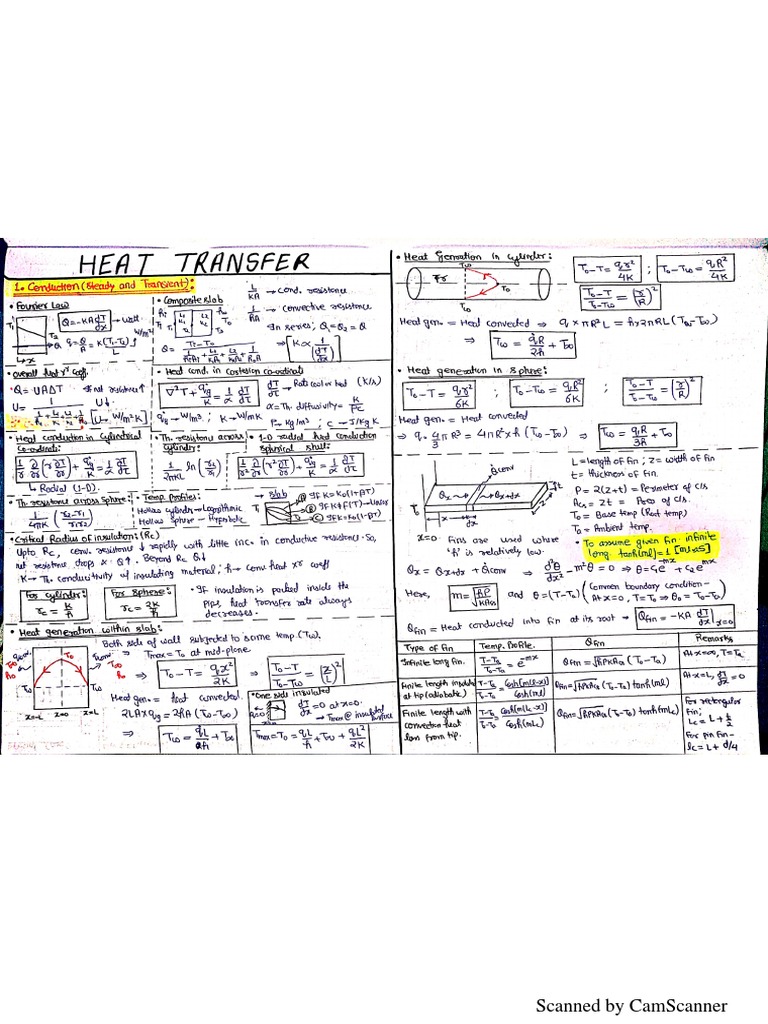 HEAT TRANSFER
1. Conduction (Steady and Transient):
• Fourier Law
Q = -KA dT/dx → Watt
q = Q/A = K(T1-T2)/L W/m²
• Composite slab
L/KA → Cond. resistance
1/hA → convective resistance
In series; Q1=Q2=Q
⇒ [K ∝ 1/(dT/dx)]
• Overall heat xr coeff.
• Q = UAΔT
U → W/m²K
• Heat cond. in cartesian co-ordinate
∇²T + qg/K = 1/α dT/dτ
dT/dτ → Rate cool or hot (K/s)
α = Th. diffusivity = K/ρC
qg → W/m³; K → W/mK
ρ → Kg/m³; C → J/Kg K
• Heat conduction in Cylindrical co-ordinate:
1/r ∂/∂r (r∂T/∂r) + qg/K = 1/α ∂T/∂τ
↳ Radial (1-D).
• Th. resistance across Cylinder:
1/2πKL ln (r2/r1)
• 1-D radial heat conduction Spherical shell:
1/r² ∂/∂r (r² ∂T/∂r) + qg/K = 1/α ∂T/∂τ
• Th. resistance across sphere:
1/4πK (r2-r1/r1r2)
• Temp. Profiles:
Hollow cylinder → Logarithmic
Hollow Sphere → Hyperbolic
→ slab
Ⓐ If K=K0(1+βT)
Ⓑ If K≠f(T) → Uniform
Ⓒ If K=K0(1-βT)
• Critical Radius of insulation: (Rc)
Upto Rc, conv. resistance ↓ rapidly with little inc. in conductive resistance. So,
net resistance drops & Q↑. Beyond Rc Q↓
K → Th. conductivity of insulating material; h → conv heat xr coeff
For cylinder:
rc = K/h
For Sphere:
rc = 2K/h
• If insulation is packed inside the
pipe, heat transfer rate always
decreases.
• Heat generation within slab:
Both side of wall subjected to same temp. (Tw).
⇒ Tmax = T0 at mid-plane.
⇒ T0-T = qx²/2K
⇒ T0-T/T0-Tw = (x/L)²
x=-L x=0 x=L
Heat gen. = heat convected.
2LAxqg = 2hA (Tw-T∞)
⇒ Tw = qL/h + T∞
• One side insulated
dT/dx = 0 at x=0.
→ Tmax @ insulated surface
Tmax = T0 = qL/h + T∞ + qL²/2K
• Heat Generation in cylinder:
T0-T = qr²/4K ; T0-Tw = qR²/4K
T0-T/T0-Tw = (r/R)²
Heat gen. = Heat convected ⇒ q x πR²L = h x 2πRL (Tw-T∞)
⇒ Tw = qR/2h + T∞
• Heat generation in Sphere:
T0-T = qr²/6K ; T0-Tw = qR²/6K ; T0-T/T0-Tw = (r/R)²
Heat gen. = Heat convected
⇒ q. 4/3 πR³ = 4πR² x h (Tw-T∞) ⇒ Tw = qR/3h + T∞
L = length of fin; Z = width of fin
t = thickness of fin.
P = 2(Z+t) = Perimeter of c/s.
Acs = Zt = Area of c/s.
T0 = Base temp (Root temp.)
Ta = Ambient temp.
• Fins are used where
'h' is relatively low.
• To assume given fin infinite
long tanh(mL) = 1 [mL≥5]
Qx = Qx+dx + Qconv ⇒ d²θ/dx² - m²θ = 0 ⇒ θ = c1e^-mx + c2e^mx
Here, m = √(hP/KAcs) and θ = (T-Ta) (Common boundary condition- At x=0, T=T0 ⇒ θ0 = T0-Ta)
Qfin = Heat conducted into fin at its root → Qfin = -KA dT/dx |x=0
Type of fin Temp. Profile. Qfin Remarks
Infinite long fin. T-Ta/T0-Ta = e^-mx Qfin = √hPKAcs (T0-Ta) At x=∞, T=Ta
Finite length insulated at tip (adiabatic) T-Ta/T0-Ta = cosh(m(L-x))/cosh(mL) Qfin = √hPKAcs (T0-Ta) tanh(mL) At x=L, dT/dx = 0
Finite length with convective heat loss from tip. T-Ta/T0-Ta = cosh(m(Lc-x))/cosh(mLc) Qfin = √hPKAcs (T0-Ta) tanh(mLc) For rectangular fin; Lc = L + t/2 For pin fin- Lc = L + d/4
Scanned by CamScanner